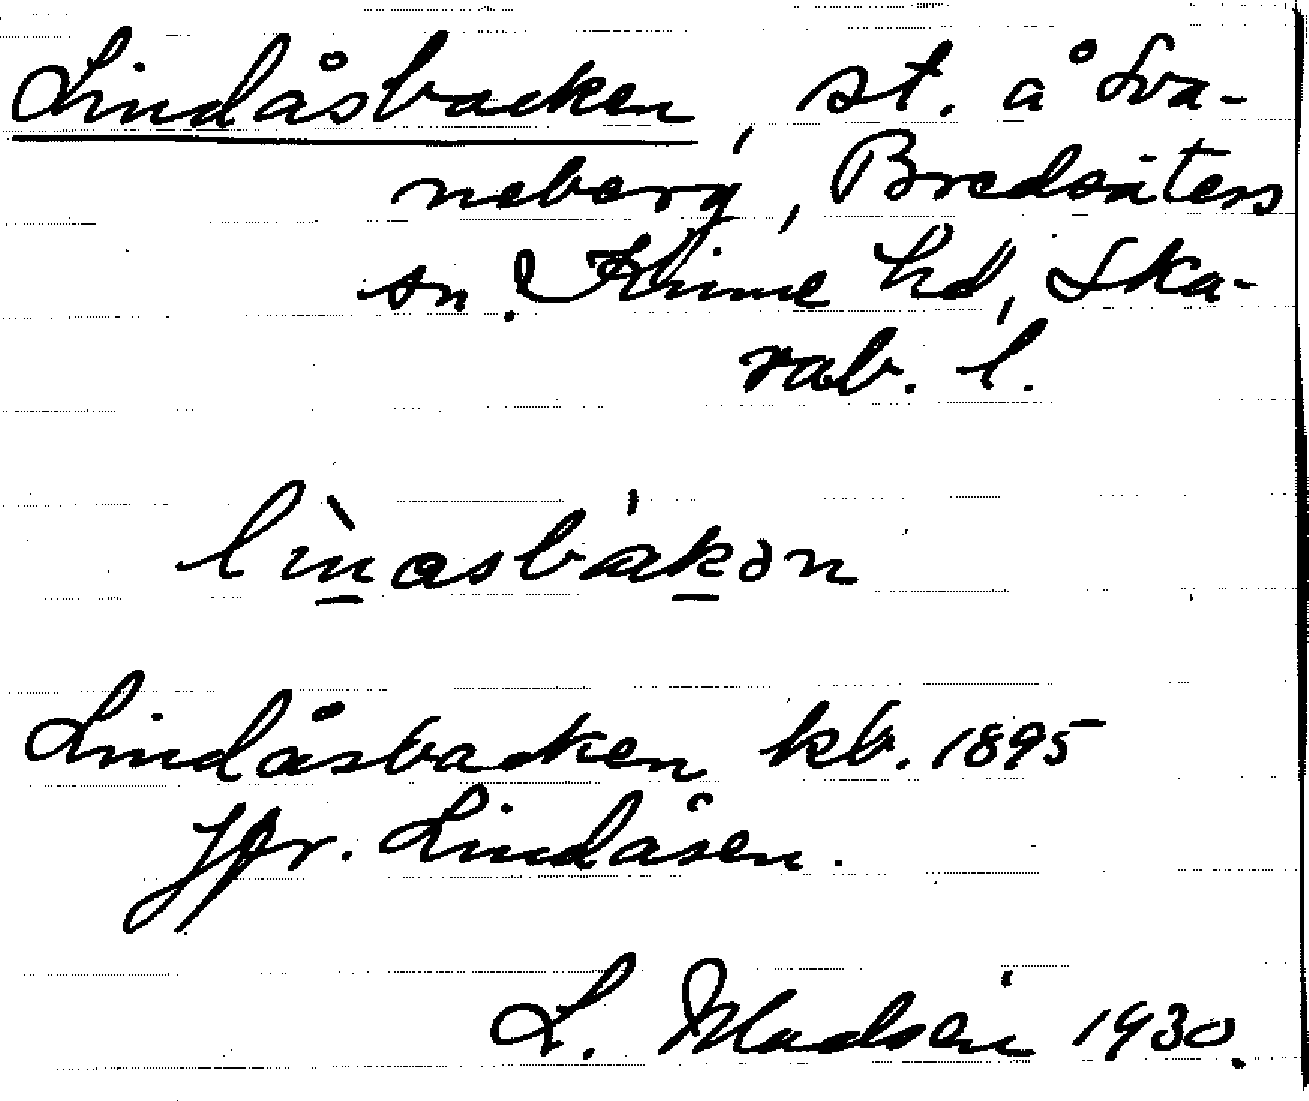 Lindåsbacken, st. å Sva-
neberg, Bredsätens
sn, Kinne hd, Ska-
rab. l.
lìnasbákən
Lindåsbacken kb. 1895
Jfr. Lindåsen.
L. Madsén 1930.